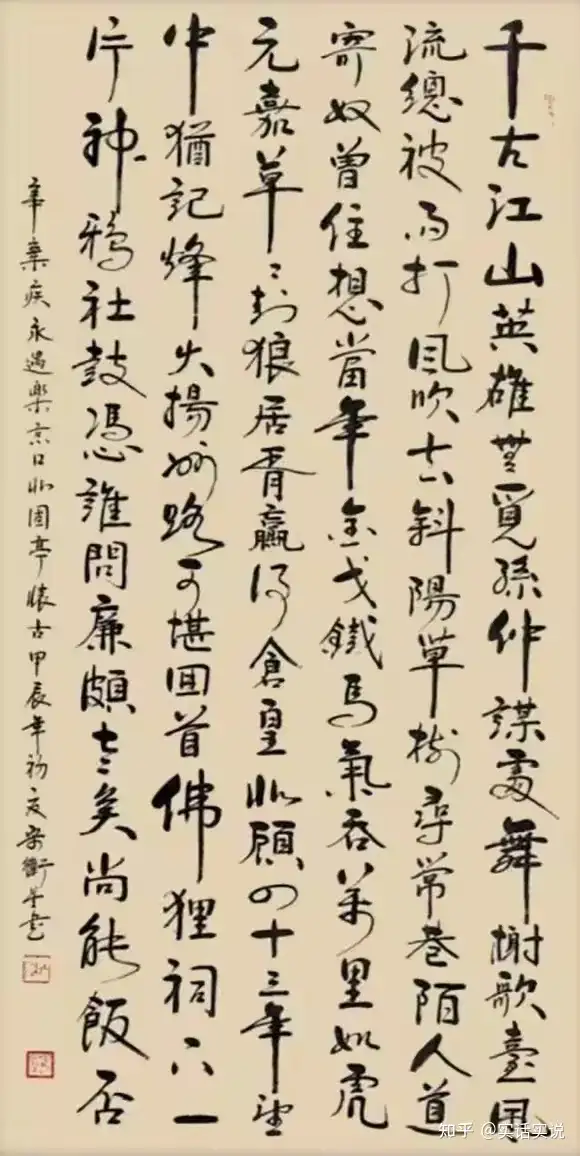 千古江山英雄無覓孫仲謀處舞榭歌臺風
流總被雨打風吹去斜陽草樹尋常巷陌人道
寄奴曾住想當年金戈鐵馬氣吞萬里如虎
元嘉草〻封狼居胥贏得倉皇北顧四十三年望
中猶記烽火揚州路可堪回首佛狸祠下一
片神鴉社鼓憑誰問廉頗老矣尚能飯否
辛棄疾永遇樂京口北固亭懷古甲辰年初夏書
知乎 @实话实说